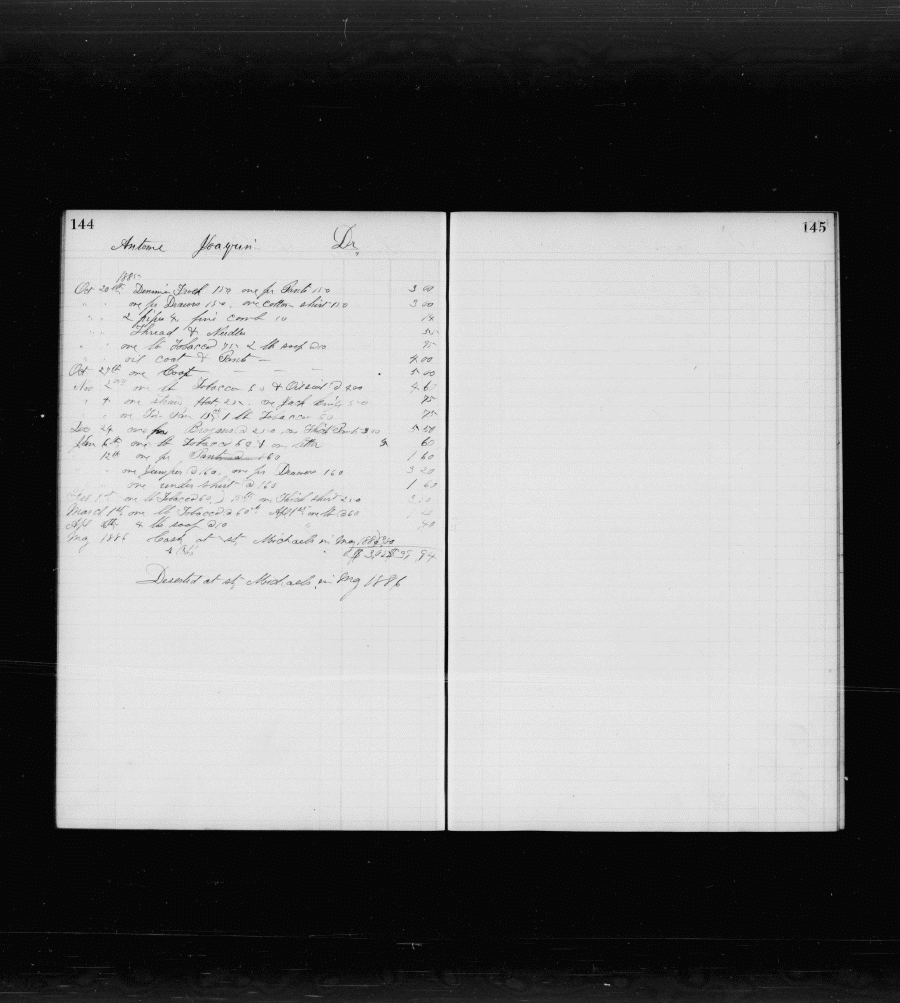 144
145
Antone Joaquin Dr
1885
Oct 20th Denim Frock 150 one pr Pants 150 3 00
" " one pr Drawers 150 one cotton shirt 150 3 00
" " 2 pipes 4 fine comb 10 14
" " Thread & Needles
" " one lb Tobacco 75 2 lb soap @10 95
" " oil coat & Pant 4 00
Oct 27th one Coat 5 00
Nov 2nd one lb Tobacco 60 & Oilsuit @ 400 4 60
" 4 one straw Hat one Jack knife 75
" " one Tin Pan 15 1 lb Tobacco 60 75
Dec 24 one pr Brogans @ 250 one Thick Pants 300 5 50
Jan 6th one lb Tobacco 60 60
12th one pr Pants @ 160 1 60
" " one Jumper @ 160, one pr Drawers 160 3 20
" " one under shirt @ 160 1 60
one lb Tobacco 60 one Thick shirt
March 1st one lb Tobacco @ 60 Apl 1st one lb @60
Apl 4 lb soap @10 40
May 1886 Cash at St Michaels in May 1886
Deserted at St Michaels in May 1886